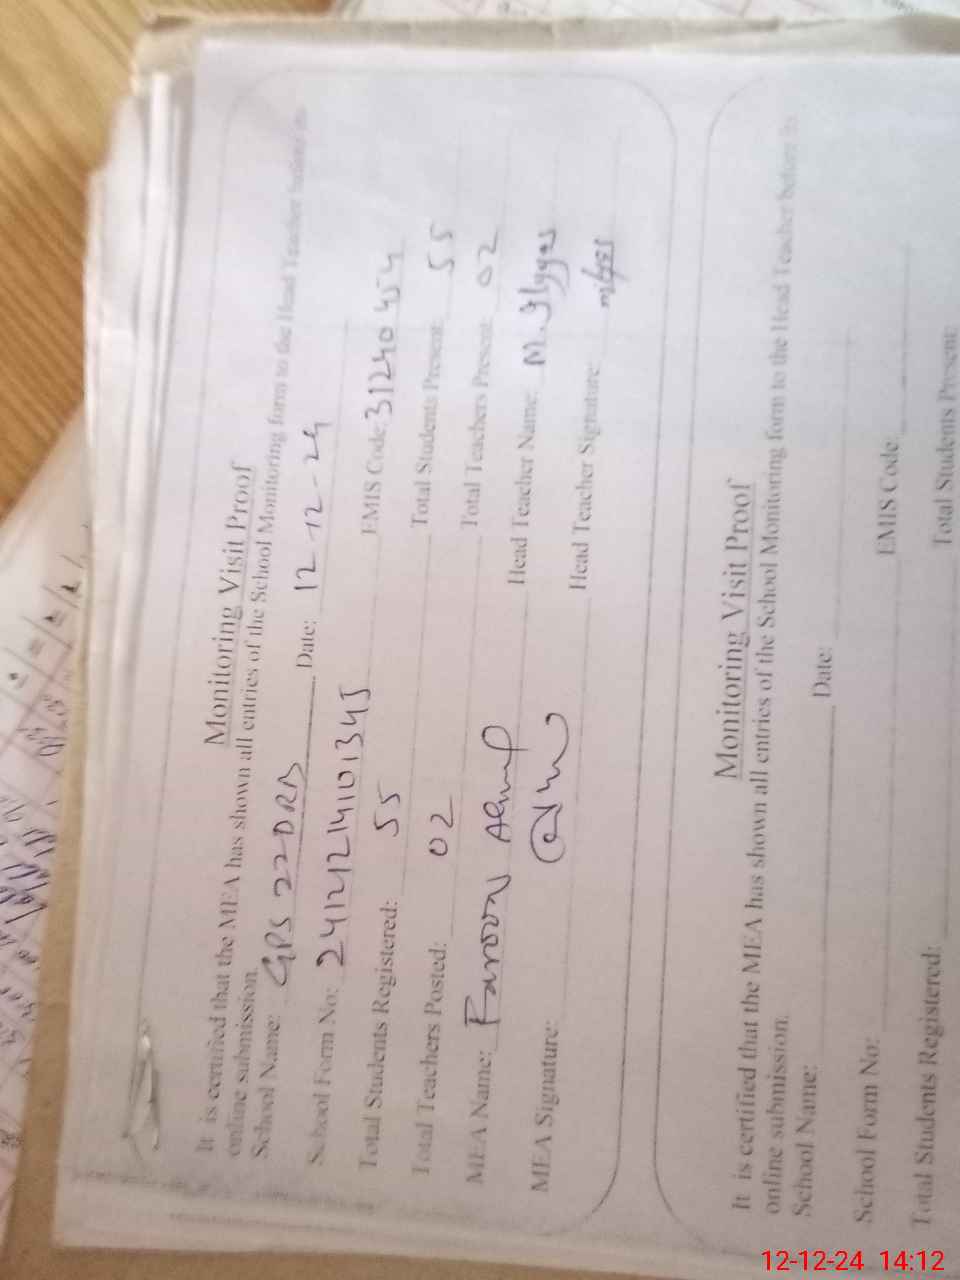 Monitoring Visit Proof
It is certified that the MEA has shown all entries of the School Monitoring form to the Head Teacher before its
online submission.
School Name: GPS 22DRB Date: 12-12-24
School Form No: 241212141101345
EMIS Code: 31240454
Total Students Registered: 55 Total Students Present: 55
Total Teachers Posted: 02 Total Teachers Present: 02
MEA Name: Farooq Ahmed Head Teacher Name: M. Ilyas
MEA Signature: Head Teacher Signature:
Monitoring Visit Proof
It is certified that the MEA has shown all entries of the School Monitoring form to the Head Teacher before its
online submission.
School Name: Date:
School Form No: EMIS Code:
Total Students Registered: Total Students Present:
12-12-24 14:12